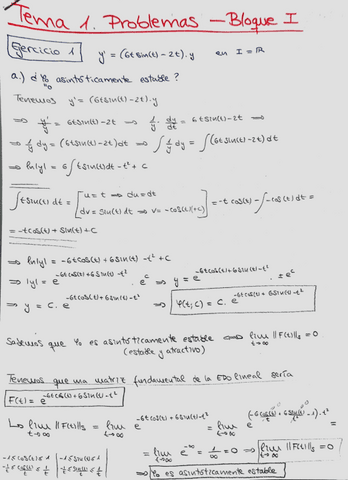 Tema 1. Problemas – Bloque I
Ejercicio 1 y' = (6tsin(t) - 2t).y en I = ℝ
a.) ¿φ₀ asintóticamente estable?
Tenemos y' = (6tsin(t) - 2t).y
⇒ y'/y = 6tsin(t) - 2t ⇒ 1/y · dy/dt = 6tsin(t) - 2t ⇒
⇒ 1/y dy = (6tsin(t) - 2t)dt ⇒ ∫ 1/y dy = ∫(6tsin(t) - 2t) dt
⇒ ln|y| = 6∫tsin(t)dt - t² + C
∫tsin(t) dt = [u = t ⇒ du = dt
dv = sin(t) dt ⇒ v = -cos(t)(+c)] = -t cos(t) - ∫-cos(t) dt =
= -tcos(t) + sin(t) + C
⇒ ln|y| = -6tcos(t) + 6sin(t) - t² + C
⇒ |y| = e^(-6tcos(t)+6sin(t)-t²) · e^c ⇒ y = e^(-6tcos(t)+6sin(t)-t²) · ±e^c
⇒ y = C. e^(-6tcos(t)+6sin(t)-t²) ⇒ φ(t;c) = C. e^(-6tcos(t)+6sin(t)-t²)
Sabemos que φ₀ es asintóticamente estable ⇔ lim t→∞ ‖F(t)‖₂ = 0.
(estable y atractivo)
Tenemos que una matriz fundamental de la EDO lineal sería
F(t) = e^(-6tcos(t)+6sin(t)-t²)
↳ lim t→∞ ‖F(t)‖₂ = lim t→∞ e^(-6tcos(t)+6sin(t)-t²) = lim t→∞ e^
= lim t→∞ e^-∞ = 1/∞ = 0 ⇒ lim t→∞ ‖F(t)‖₂ = 0
-1 ≤ cos(t) ≤ 1 | -1 ≤ sin(t) ≤ 1
⇒ φ₀ es asintóticamente estable